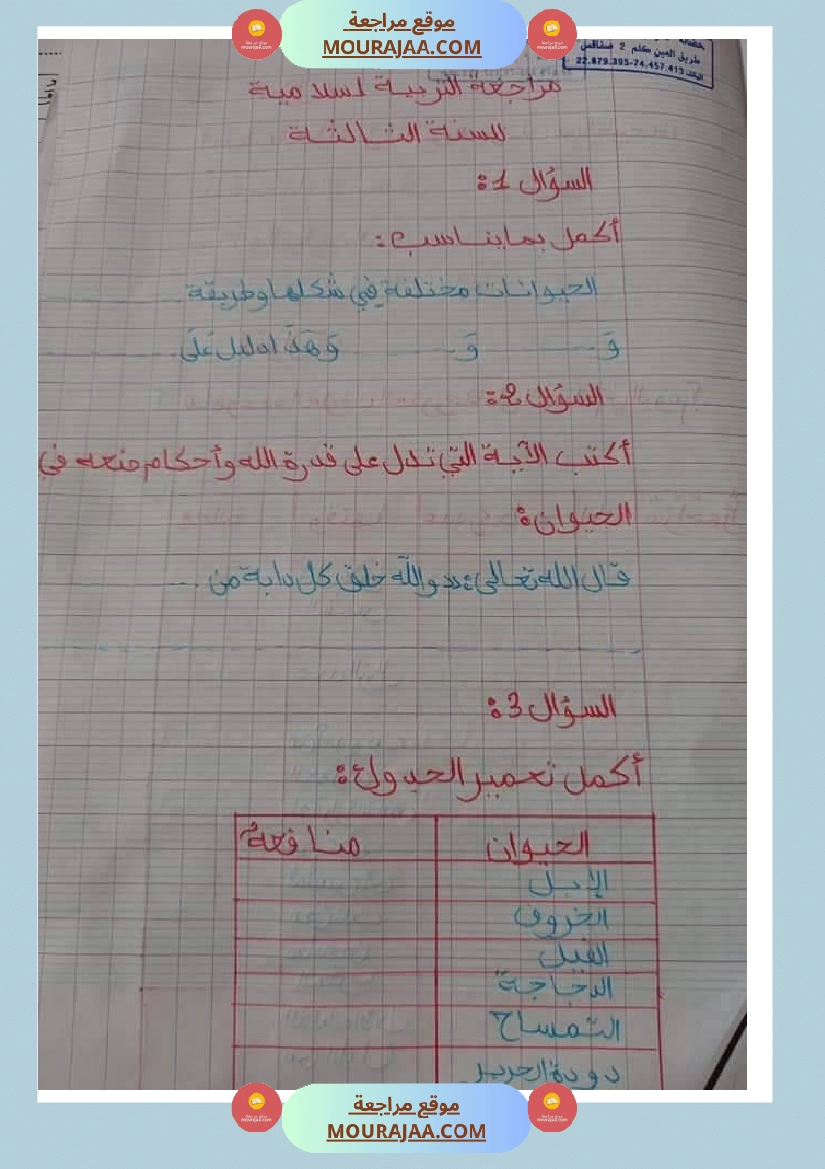 موقع مراجعة
MOURAJAA.COM
طريق العين كلم 2 صفاقس
22.679.395-24.457.419
مراجعة التربية اسلامية
للسنة الثالثة
السؤال 1:
أكمل بما يناسب:
الحيوانات مختلفة في شكلها وطريقة
وَ وَ وَهَذَا دليل عَلَى
السؤال 2:
أكتب الآية التي تدل على قدرة الله وأحكام صنعه في
الحيوان:
قال الله تعالى: «والله خلق كل دابة من
السؤال 3:
أكمل تعمير الجدول:
الحيوان منافعهُ
الإبل
الخروف
الفيل
الدجاجة
التمساح
دودة الحرير
موقع مراجعة
MOURAJAA.COM